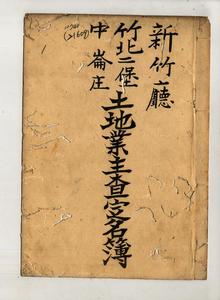 新竹廳
竹北二堡
中崙庄
土地業主查定名簿